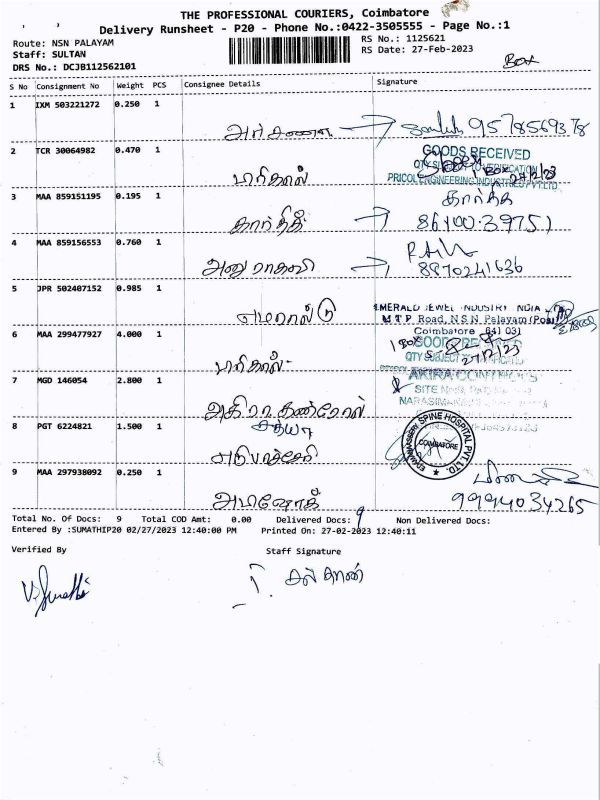 THE PROFESSIONAL COURIERS, Coimbatore
Delivery Runsheet - P20 - Phone No.:0422-3505555 - Page No.:1
Route: NSN PALAYAM
RS No.: 1125621
Staff: SULTAN
RS Date: 27-Feb-2023
DRS No.: DCJB112562101
Box
S No Consignment No Weight PCS Consignee Details Signature
1 IXM 503221272 0.250 1
9578569378
2 TCR 30064982 0.470 1
GOODS RECEIVED
PRICOL ENGINEERING INDUSTRIES PVT LTD
பரிகால்
3 MAA 859151195 0.195 1
கார்த்திக்
4 MAA 859156553 0.760 1
8970241636
5 JPR 502407152 0.985 1
எமரால்டு
EMERALD JEWEL INDUSTRY INDIA
M.T.P. Road, N.S.N. Palayam (Post)
Coimbatore 641 031
6 MAA 299477927 4.000 1
1 Box
GOODS RECEIVED
QTY SUBJECT
27/2/23
பரிகால்
7 MGD 146054 2.800 1
AKIRA CONTROLS
8 PGT 6224821 1.500 1
சத்யா
SPINE HOSPITAL PVT. LTD.
COIMBATORE
9 MAA 297938092 0.250 1
9994034265
Total No. Of Docs: 9 Total COD Amt: 0.00 Delivered Docs: 9 Non Delivered Docs:
Entered By :SUMATHIP20 02/27/2023 12:40:00 PM Printed On: 27-02-2023 12:40:11
Verified By Staff Signature